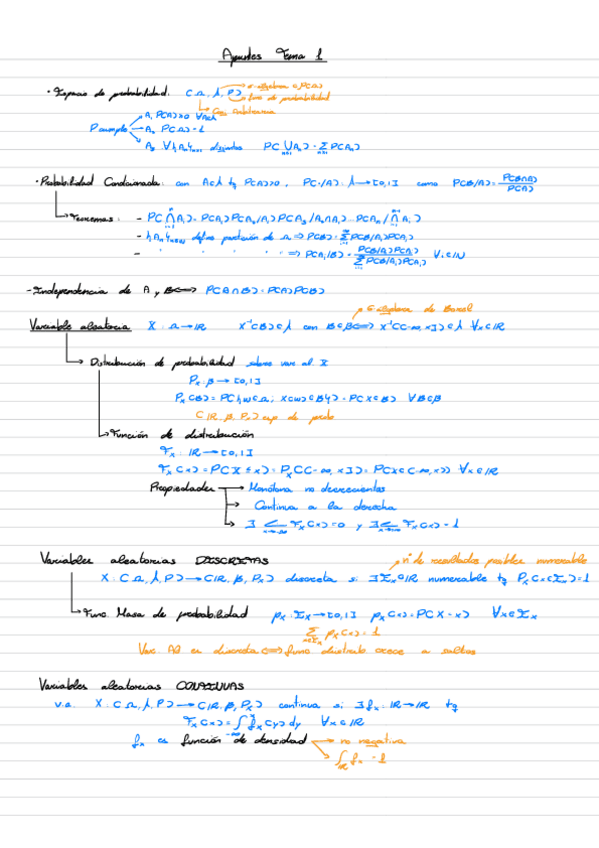 Apuntes Tema 1
· Espacio de probabilidad: (Ω, A, P) → σ-álgebra ⊂ P(Ω)
→ func de probabilidad
→ Conj
P cumple → A₁ P(A) ≥ 0 ∀A∈A
→ A₂ P(Ω) = 1
→ A₃ ∀{Aₙ}ₙ∈ℕ disjuntos P(⋃ₙ≥₁ Aₙ) = Σₙ≥₁ P(Aₙ)
· Probabilidad Condicionada: con A∈A tq P(A)>0, P(·/A): A → [0,1] como P(B/A) = P(B∩A)/P(A)
→ Teoremas: - P(⋂ⁿᵢ₌₁ Aᵢ) = P(A₁)P(A₂/A₁)P(A₃/A₁∩A₂)...P(Aₙ/⋂ⁿ⁻¹ᵢ₌₁ Aᵢ)
- {Aₙ}ₙ∈ℕ define partición de Ω ⇒ P(B) = Σ P(B/Aᵢ)P(Aᵢ)
- " " " " ⇒ P(Aᵢ/B) = P(B/Aᵢ)P(Aᵢ) / Σ P(B/Aᵢ)P(Aᵢ) ∀i∈ℕ
- Independencia de A y B ⟺ P(A∩B) = P(A)P(B)
→ σ-álgebra de Borel
Variable aleatoria X: Ω → ℝ X⁻¹(B)∈A con B∈β ⟺ X⁻¹((-∞, x])∈A ∀x∈ℝ
→ Distribución de probabilidad sobre var. al. X
Pₓ: β → [0,1]
Pₓ(B) = P({ω∈Ω; X(ω)∈B}) = P(X∈B) ∀B∈β
(ℝ, β, Pₓ) esp de prob
→ Función de distribución
Fₓ: ℝ → [0,1]
Fₓ(x) = P(X ≤ x) = Pₓ((-∞, x]) = P(X∈(-∞, x]) ∀x∈ℝ
Propiedades → Monótona no decreciente
→ Continua a la derecha
→ ∃ lim x→-∞ Fₓ(x) = 0 y ∃ lim x→∞ Fₓ(x) = 1
Variables aleatorias DISCRETAS → nº de resultados posibles numerable
X: (Ω, A, P) → (ℝ, β, Pₓ) discreta si ∃Eₓ⊂ℝ numerable tq Pₓ(X∈Eₓ) = 1
→ Func Masa de probabilidad pₓ: Eₓ → [0,1] pₓ(x) = P(X = x) ∀x∈Eₓ
Σ x∈Eₓ pₓ(x) = 1
Var. Al es discreta ⟺ func distrib crece a saltos
Variables aleatorias CONTINUAS
v.a. X: (Ω, A, P) → (ℝ, β, Pₓ) continua si ∃fₓ: ℝ → ℝ tq
Fₓ(x) = ∫ˣ₋∞ fₓ(y)dy ∀x∈ℝ
fₓ es función de densidad → no negativa
→ ∫ℝ fₓ = 1